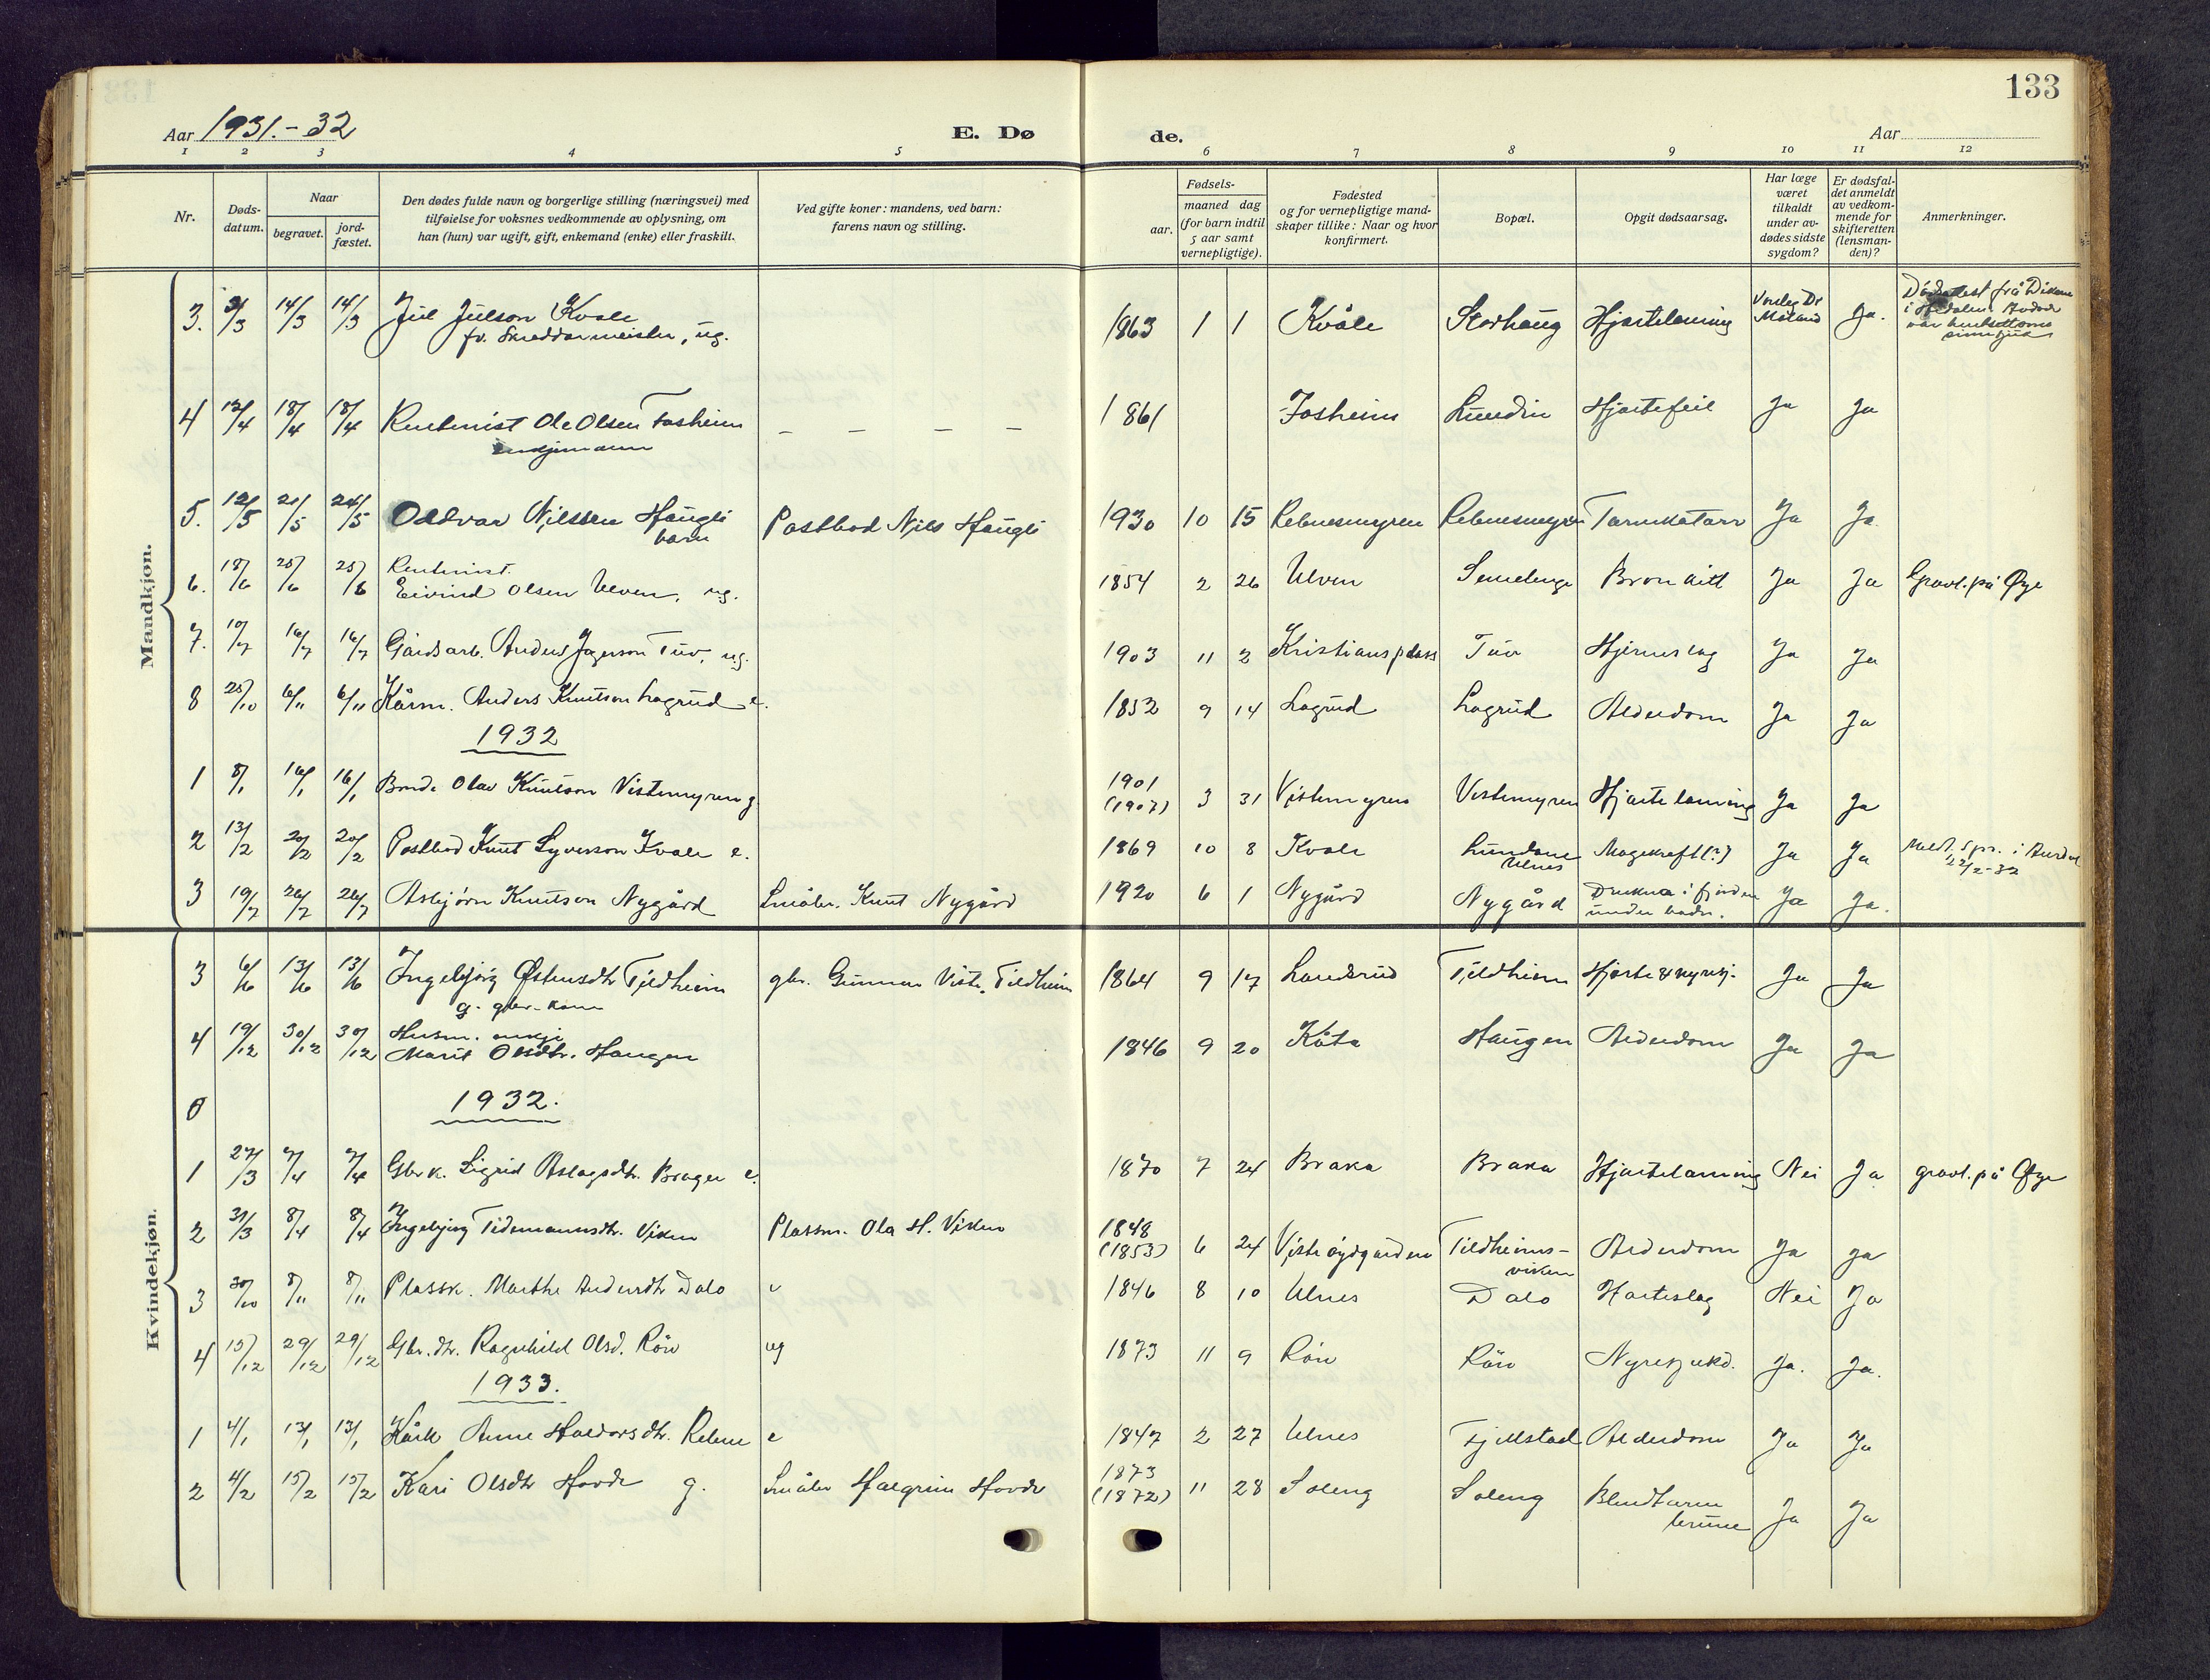 133
Aar 1931.-32 E. Dø de. Aar
1 2 3 4 5 6 7 8 9 10 11 12
Nr.
Døds-
datum.
Naar
begravet.
jord-
fæstet.
Den dødes fulde navn og borgerlige stilling (næringsvei) med
tilføielse for voksnes vedkommende av oplysning, om
han (hun) var ugift, gift, enkemand (enke) eller fraskilt.
Ved gifte koner: mandens, ved barn:
farens navn og stilling.
Fødsels-
aar.
maaned dag
(for barn indtil
5 aar samt
vernepligtige).
Fødested
og for vernepligtige mand-
skaper tillike: Naar og hvor
konfirmert.
Bopæl.
Opgit dødsaarsag.
Har læge
været
tilkaldt
under av-
dødes sidste
sygdom?
Er dødsfal-
det anmeldt
av vedkom-
mende for
skifteretten
(lensman-
den)?
Anmerkninger.
Mandkjøn.
3. 14/3 14/3 Jul Julson Kvale 1863 1 1 Kvåle Storhaug Hjartelaming Ja.
fv. Skreddarmeister, ug.
4 12/4 18/4 18/4 Rentenist Ole Olsen Fosheim — — — — 1861 Fosheim Lundin Hjartefeil Ja Ja
enkjemann
5. 12/5 21/5 Oddvar Nilssen Haugli Postbod Nils Haugli 1930 10 15 Rebnesmyren Rebnesmyren Tarmkatarr Ja Ja
barn
Rentenist.
6. 18/6 25/6 25/6 Eivind Olsen Ulven, ug. 1854 2 26 Ulven Semelenge Ja Ja Gravl. på Øye
7. 10/7 16/7 16/7 Gardsarb. Anders Tuv, ug. 1903 11 2 Kristiansplass Tuv Hjerneslag Ja Ja
8 25/10 6/11 6/11 Kårm. Anders Knutson Lagrud e. 1852 9 14 Lagrud Lagrud Alderdom Ja Ja
1932
1 8/1 16/1 16/1 Bonde Olav Knutson Vistemyren g. 1901 (1907) 3 31 Vistemyren Vistemyren Hjartelaming Ja Ja
2 13/2 20/2 20/2 Postbod Knut Syverson Kvale e. 1869 10 8 Kvale Lundane Ulnes Magekreft(?) Ja Ja Meldt. spr. i Aurdal
22/2-32
3 19/7 26/7 26/7 Asbjørn Knutson Nygård Småbr. Knut Nygård 1920 6 1 Nygård Nygård Drukna i fjorden Ja Ja.
under badn.
Kvindekjøn.
3 6/6 13/6 13/6 Ingebjørg Østensdtr Tildheim gbr. Gunnar Viste, Tildheim 1864 9 17 Landsrud Tildheim Hjarte & nyresj. Ja Ja
g. gbr.-kone
Husm. enkje
4 19/12 30/12 30/12 Marit Olsdtr. Haugen 1846 9 20 Kåta Haugen Alderdom Ja Ja
0 1932.
1 27/3 7/4 7/4 Gbrk. Sigrid Aslagsdtr. Brager e. 1870 7 24 Braka Braka Hjartelaming Nei Ja gravl. på Øye
2 31/3 8/4 8/4 Ingebjørg Tidemannsdtr. Viken Plassm. Ola H. Viken 1848 (1853) 6 24 Viste øydgarden Tildheims-
viken Alderdom Ja Ja
3 30/10 8/11 8/11 Plassk. Marthe Andersdtr Dalo e 1846 8 10 Ulnes Dalo Harteslag Nei Ja
4 15/12 29/12 29/12 Gbr.dtr. Ragnhild Olsd. Røn ug 1873 11 9 Røn Røn Nyresjukd. Ja. Ja.
1933.
1 4/1 13/1 13/1 Kårk Anne Haldorsdtr. Rebne e 1847 2 27 Ulnes Fjellstad Alderdom Ja Ja
2 4/2 15/2 15/2 Kari Olsdtr Hovde g. Småbr Halgrim Hovde 1873 (1872) 11 28 Soleng Soleng Blindtarm Ja Ja